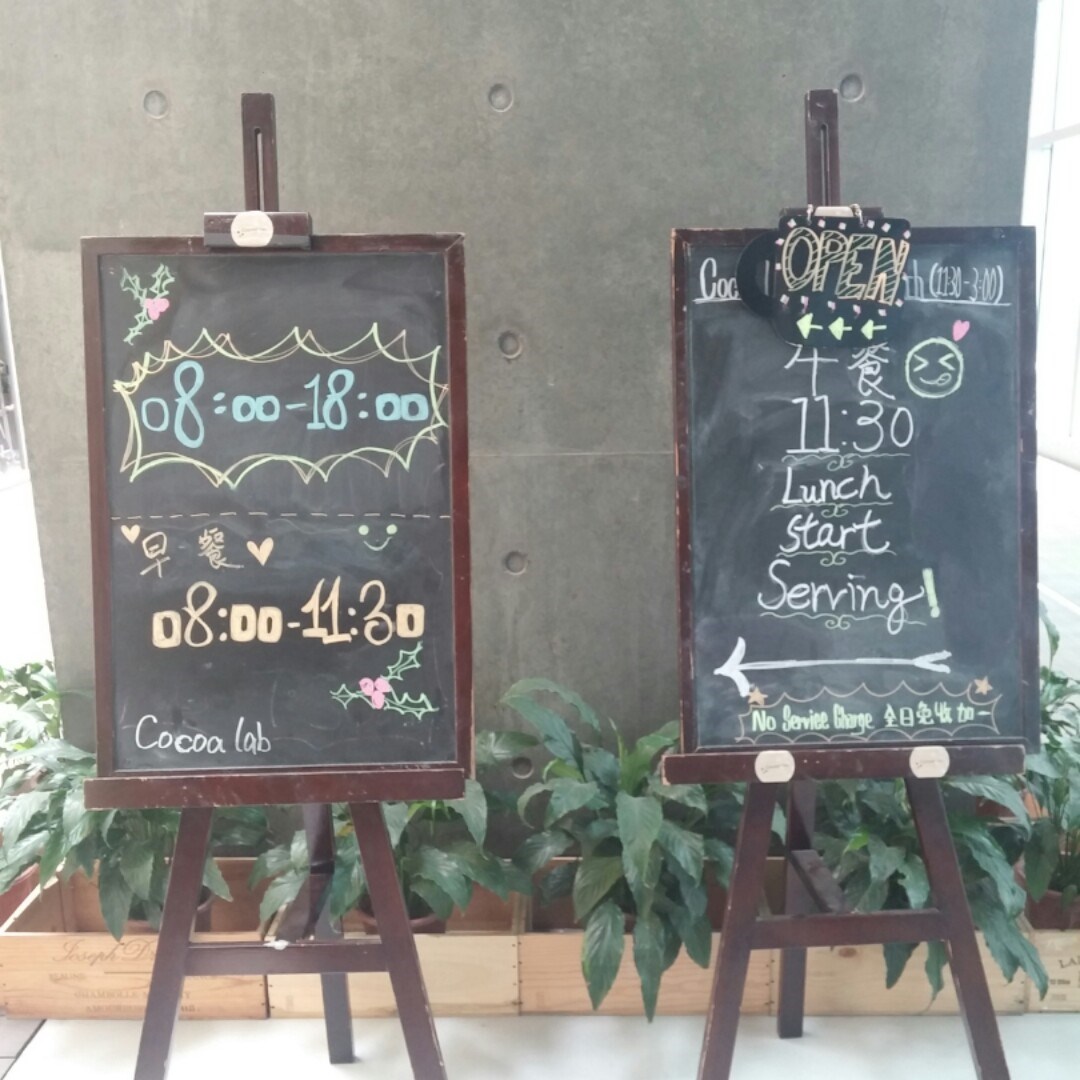 08:00-18:00
早餐
08:00-11:30
Cocoa lab
OPEN
(11:30-3:00)
午餐
11:30
Lunch
Start
Serving!
No Service Charge 全日免收加一